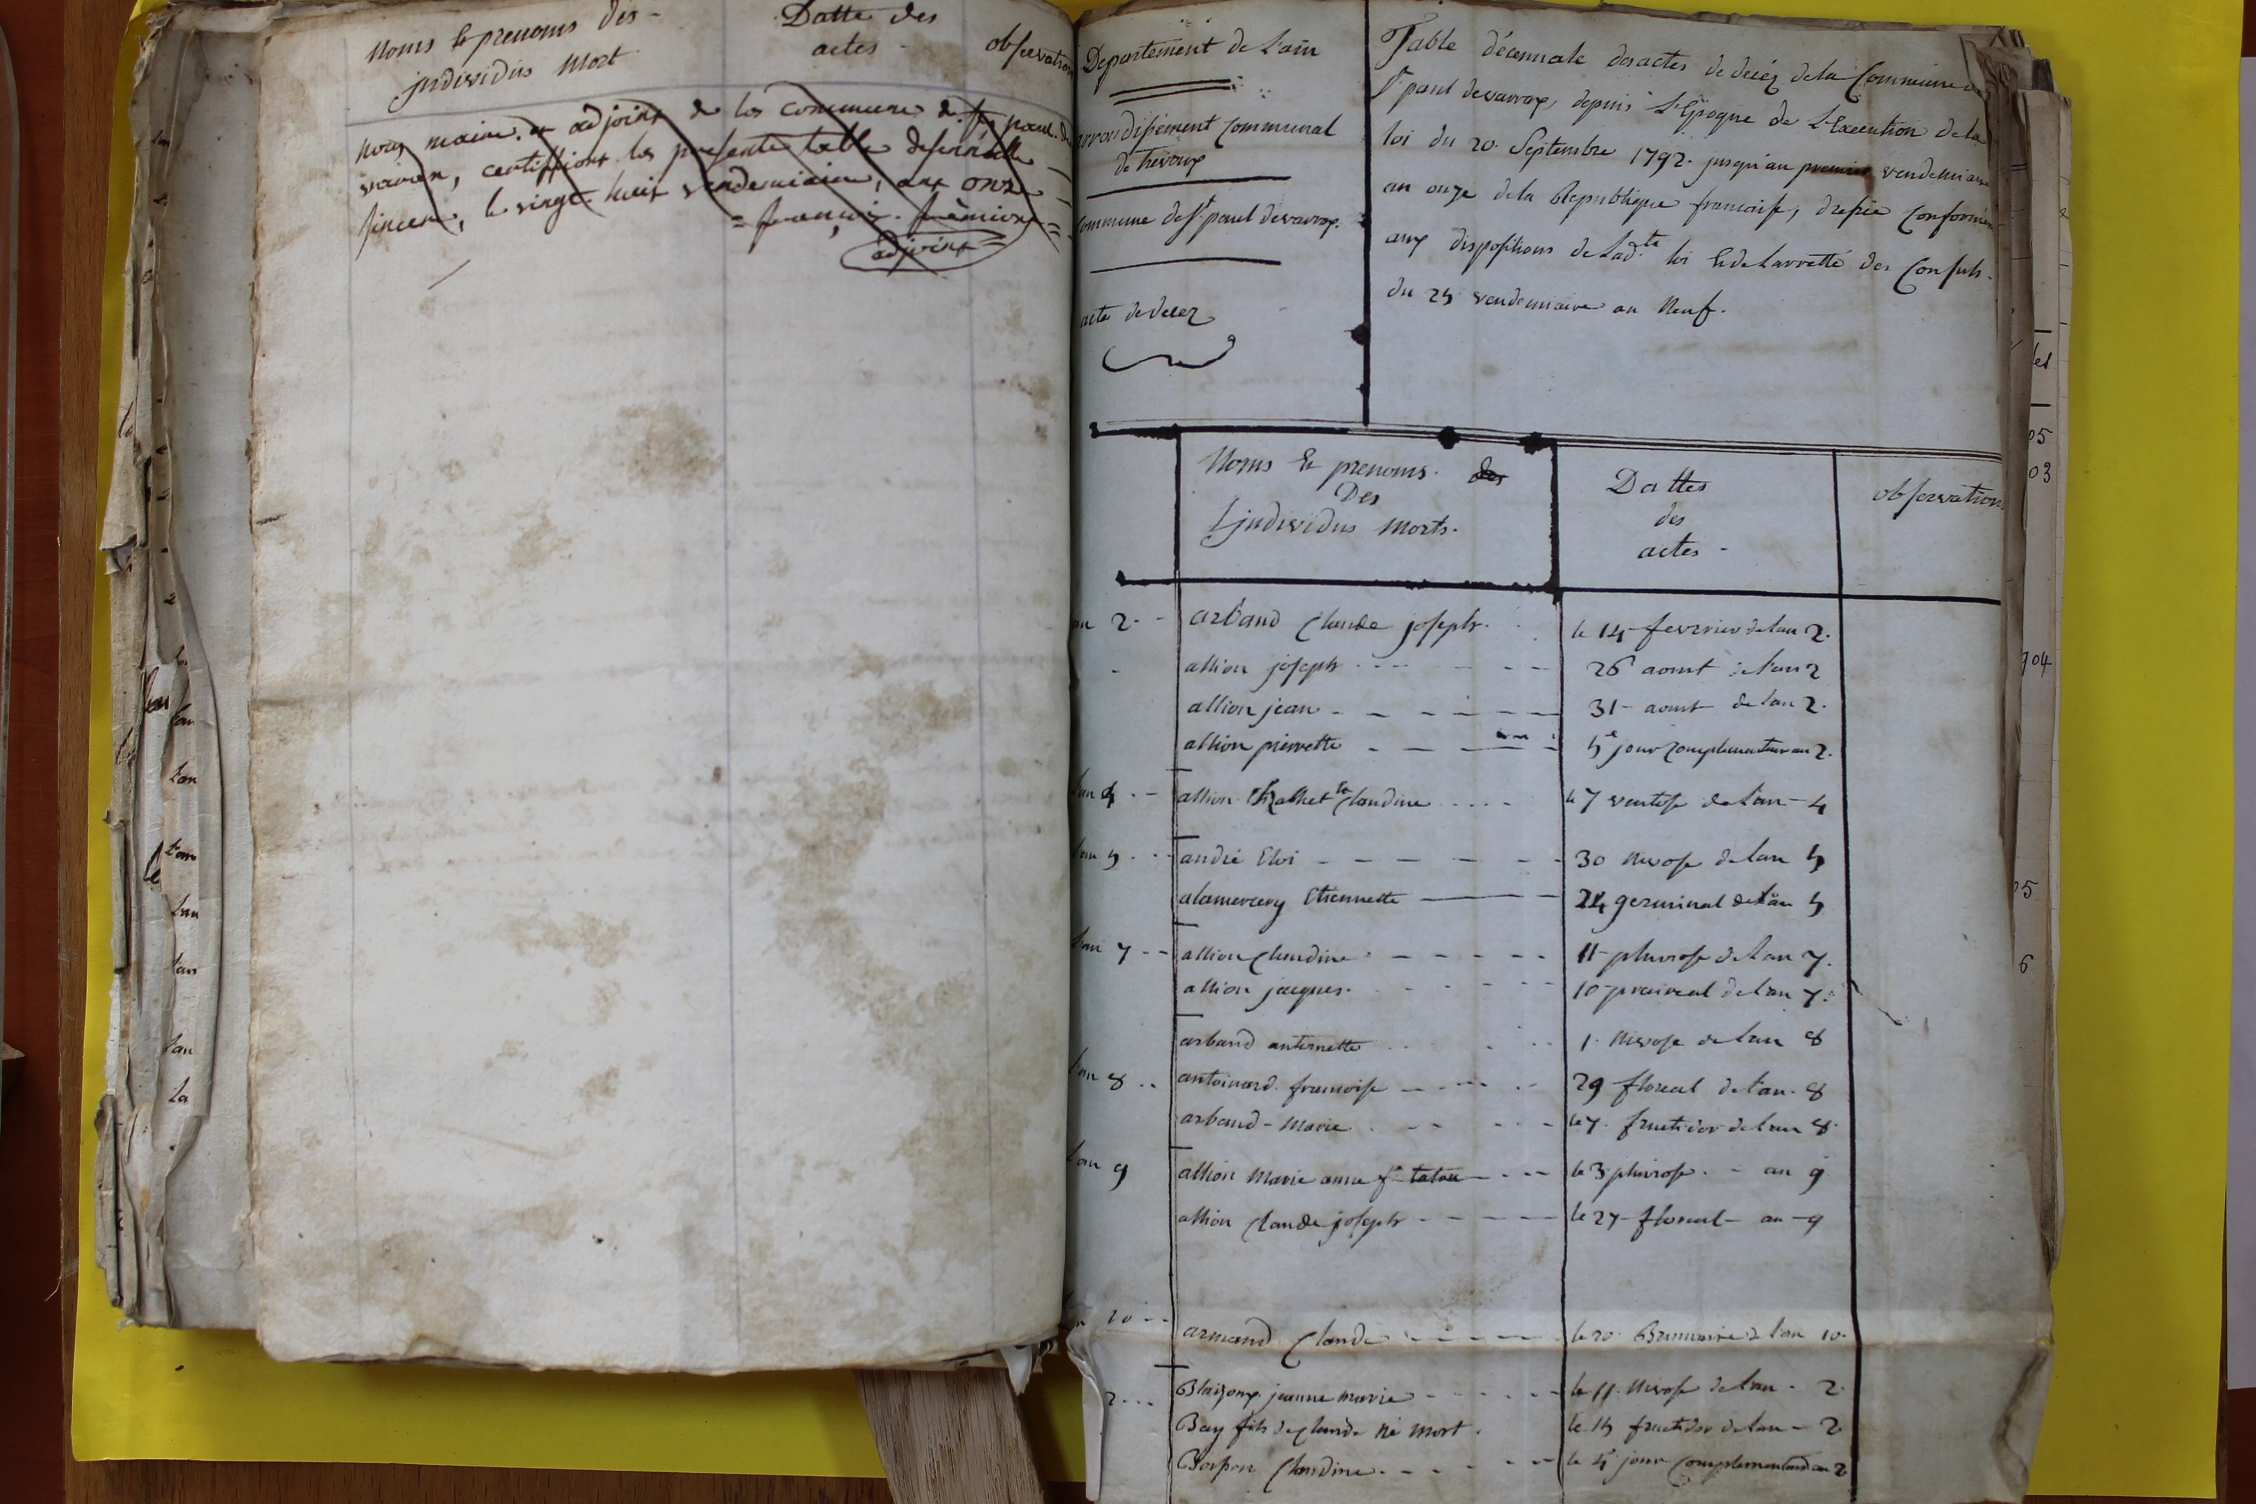 Noms & prenoms des
individus Mort
Datte des
actes
observation
Nous maire et adjoint de la commune de st paul de
varax, certiffions la presente table desennalle
sincere, le vingt huit vendemiaire, ant onze
adjoint
Departement de Lain
arrondissement Communal
de Trevoux
Commune de st paul devarax.
acte de decez
Table décennale des actes de decéz de la Commune de
st paul devarax, depuis L'Epoque de L'Execution de la
loi du 20 Septembre 1792. jusqu'au premier vendemiaire
an onze de la Republique francaise, dressée Conformem
aux dispositions de Ladte loi & de Larretté des Consuls
du 25 vendemiaire an Neuf.
Noms & prenoms. des
Des
individus Morts.
Dattes
des
actes
observation
an 2 arband Claude joseph. le 14 fevrier de lan 2.
allion joseph 26 aoust de lan 2
allion jean 31 aoust de lan 2.
allion pierrette 5e jour Complementair an 2.
lan 4 allion Claudine le 7 ventose de lan 4
lan 5 andré Eloi 30 Nivose de lan 5
alamercery Etiennette 24 germinal de lan 5
lan 7 allion Claudine 11 pluviose de lan 7.
allion jacques. 10 prairial de lan 7.
arband antoinette 1. Nivose de lan 8
lan 8 antoinard francoise 29 floreal de lan 8
arband Marie le 7. fructidor de lan 8.
lan 9 allion Marie anne le 3 pluviose an 9
allion Claude joseph le 27 floreal an 9
10 armand Claude le 20 Brumaire de lan 10.
2 Blaizoux jeanne marie le 11 Nivose de lan 2
Bay fils de Claude Né Mort. le 15 fructidor de lan 2
Bosson Claudine le 4e jour Complementaire an 2